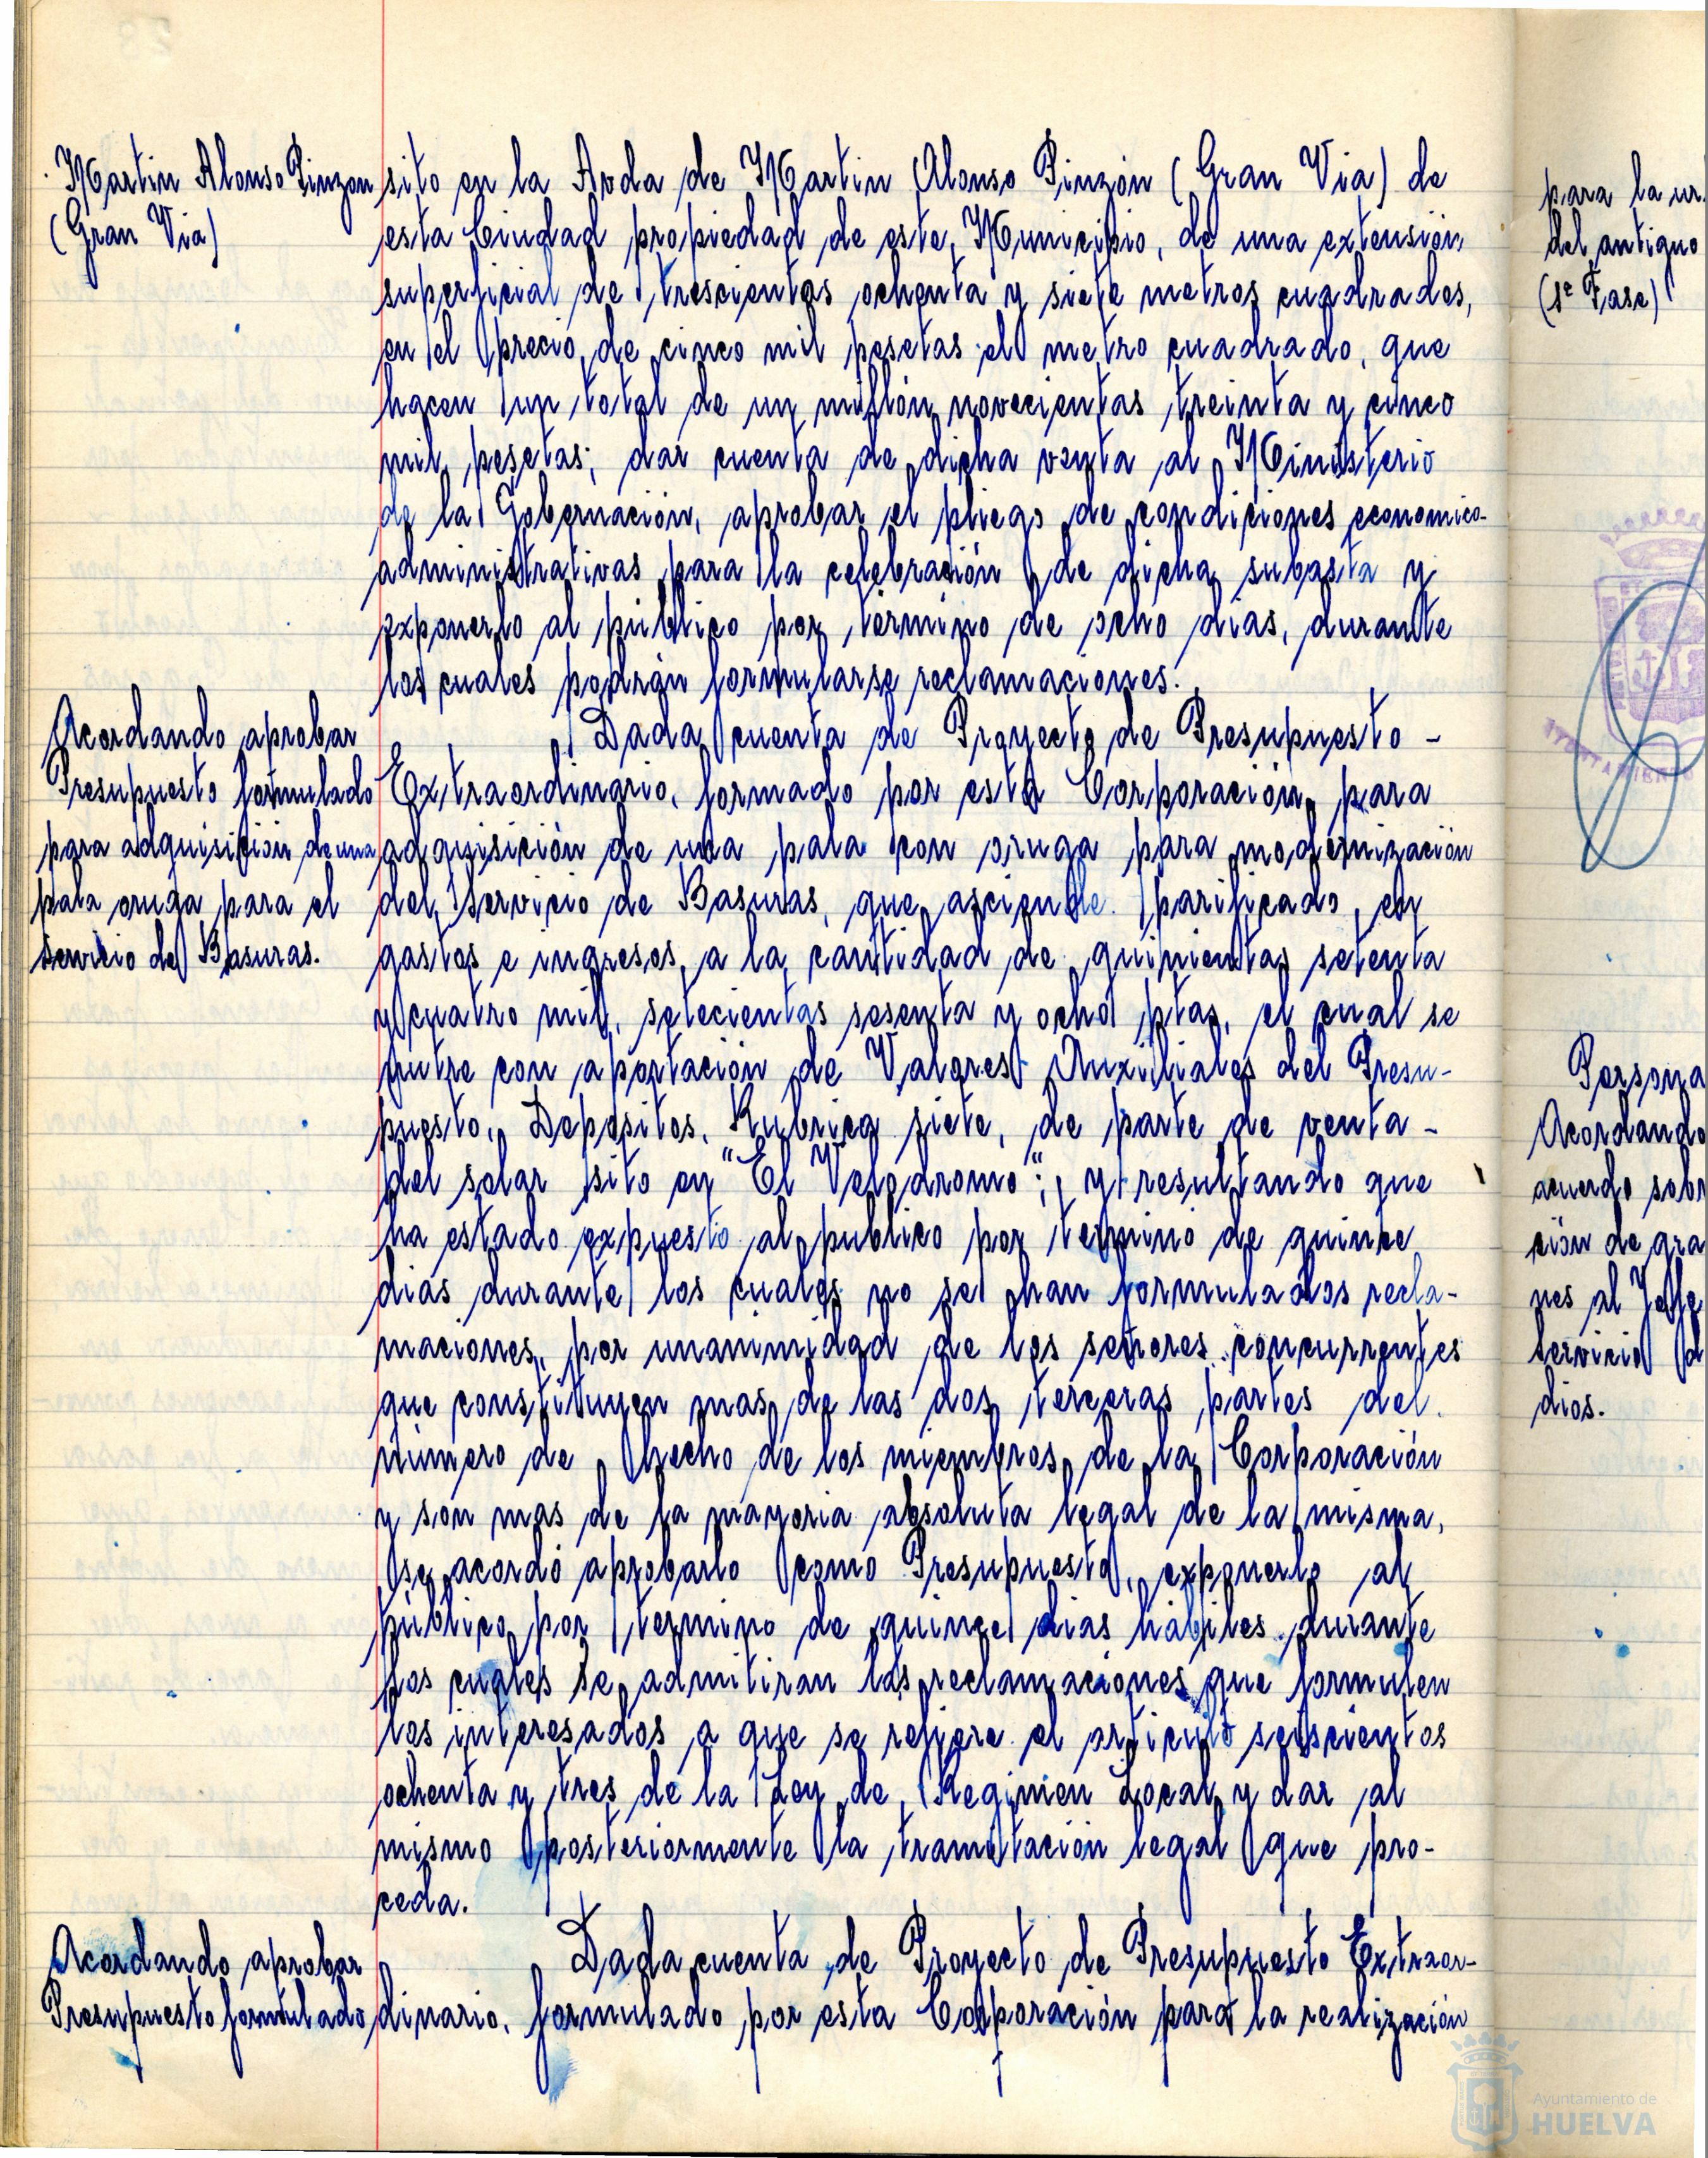 Martin Alonso Pinzon
(Gran Via)
sito en la Avda de Martin Alonso Pinzón (Gran Via) de
esta Ciudad propiedad de este Municipio, de una extensión
superficial de trescientas ochenta y siete metros cuadrados,
en el precio de cinco mil pesetas el metro cuadrado, que
hacen un total de un millón novecientas treinta y cinco
mil pesetas; dar cuenta de dicha venta al Ministerio
de la Gobernación, aprobar el pliego de condiciones economico-
administrativas para la celebración de dicha subasta y
exponerlo al público por término de ocho dias, durante
los cuales podrán formularse reclamaciones.
Acordando aprobar
Presupuesto formulado
para adquisición de una
pala oruga para el
Servicio de Basuras.
Dada cuenta de Proyecto de Presupuesto -
Extraordinario, formado por esta Corporación, para
adquisición de una pala con oruga para modernización
del Servicio de Basuras, que asciende parificado, en
gastos e ingresos, a la cantidad de quinientas setenta
y cuatro mil, setecientas sesenta y ocho ptas, el cual se
nutre con aportación de Valores Auxiliales del Presu-
puesto. Depositos, Rubrica siete, de parte de venta -
del solar sito en "El Velodromo"; y resultando que
ha estado expuesto al publico por termino de quince
dias durante los cuales no se han formulados recla-
maciones, por unanimidad de los señores concurrentes
que constituyen mas de las dos terceras partes del
número de hecho de los miembros de la Corporación
y son mas de la mayoria absoluta legal de la misma,
se acordó aprobarlo como Presupuesto, exponerlo al
público por termino de quince dias hábiles durante
los cuales se admitiran las reclamaciones que formulen
los interesados a que se refiere el articulo seiscientos
ochenta y tres de la Ley de Regimen Local y dar al
mismo posteriormente la tramitación legal que pro-
ceda.
Acordando aprobar
Presupuesto formulado
Dada cuenta de Proyecto de Presupuesto Extraor-
dinario, formulado por esta Corporación para la realización
para la ur
del antiguo
(1ª Fase)
AYUNTAMIENTO
Persona
Acordando
acuerdo sobr
ción de gra
nes al Jefe
Servicio d
dios.
Ayuntamiento de
HUELVA